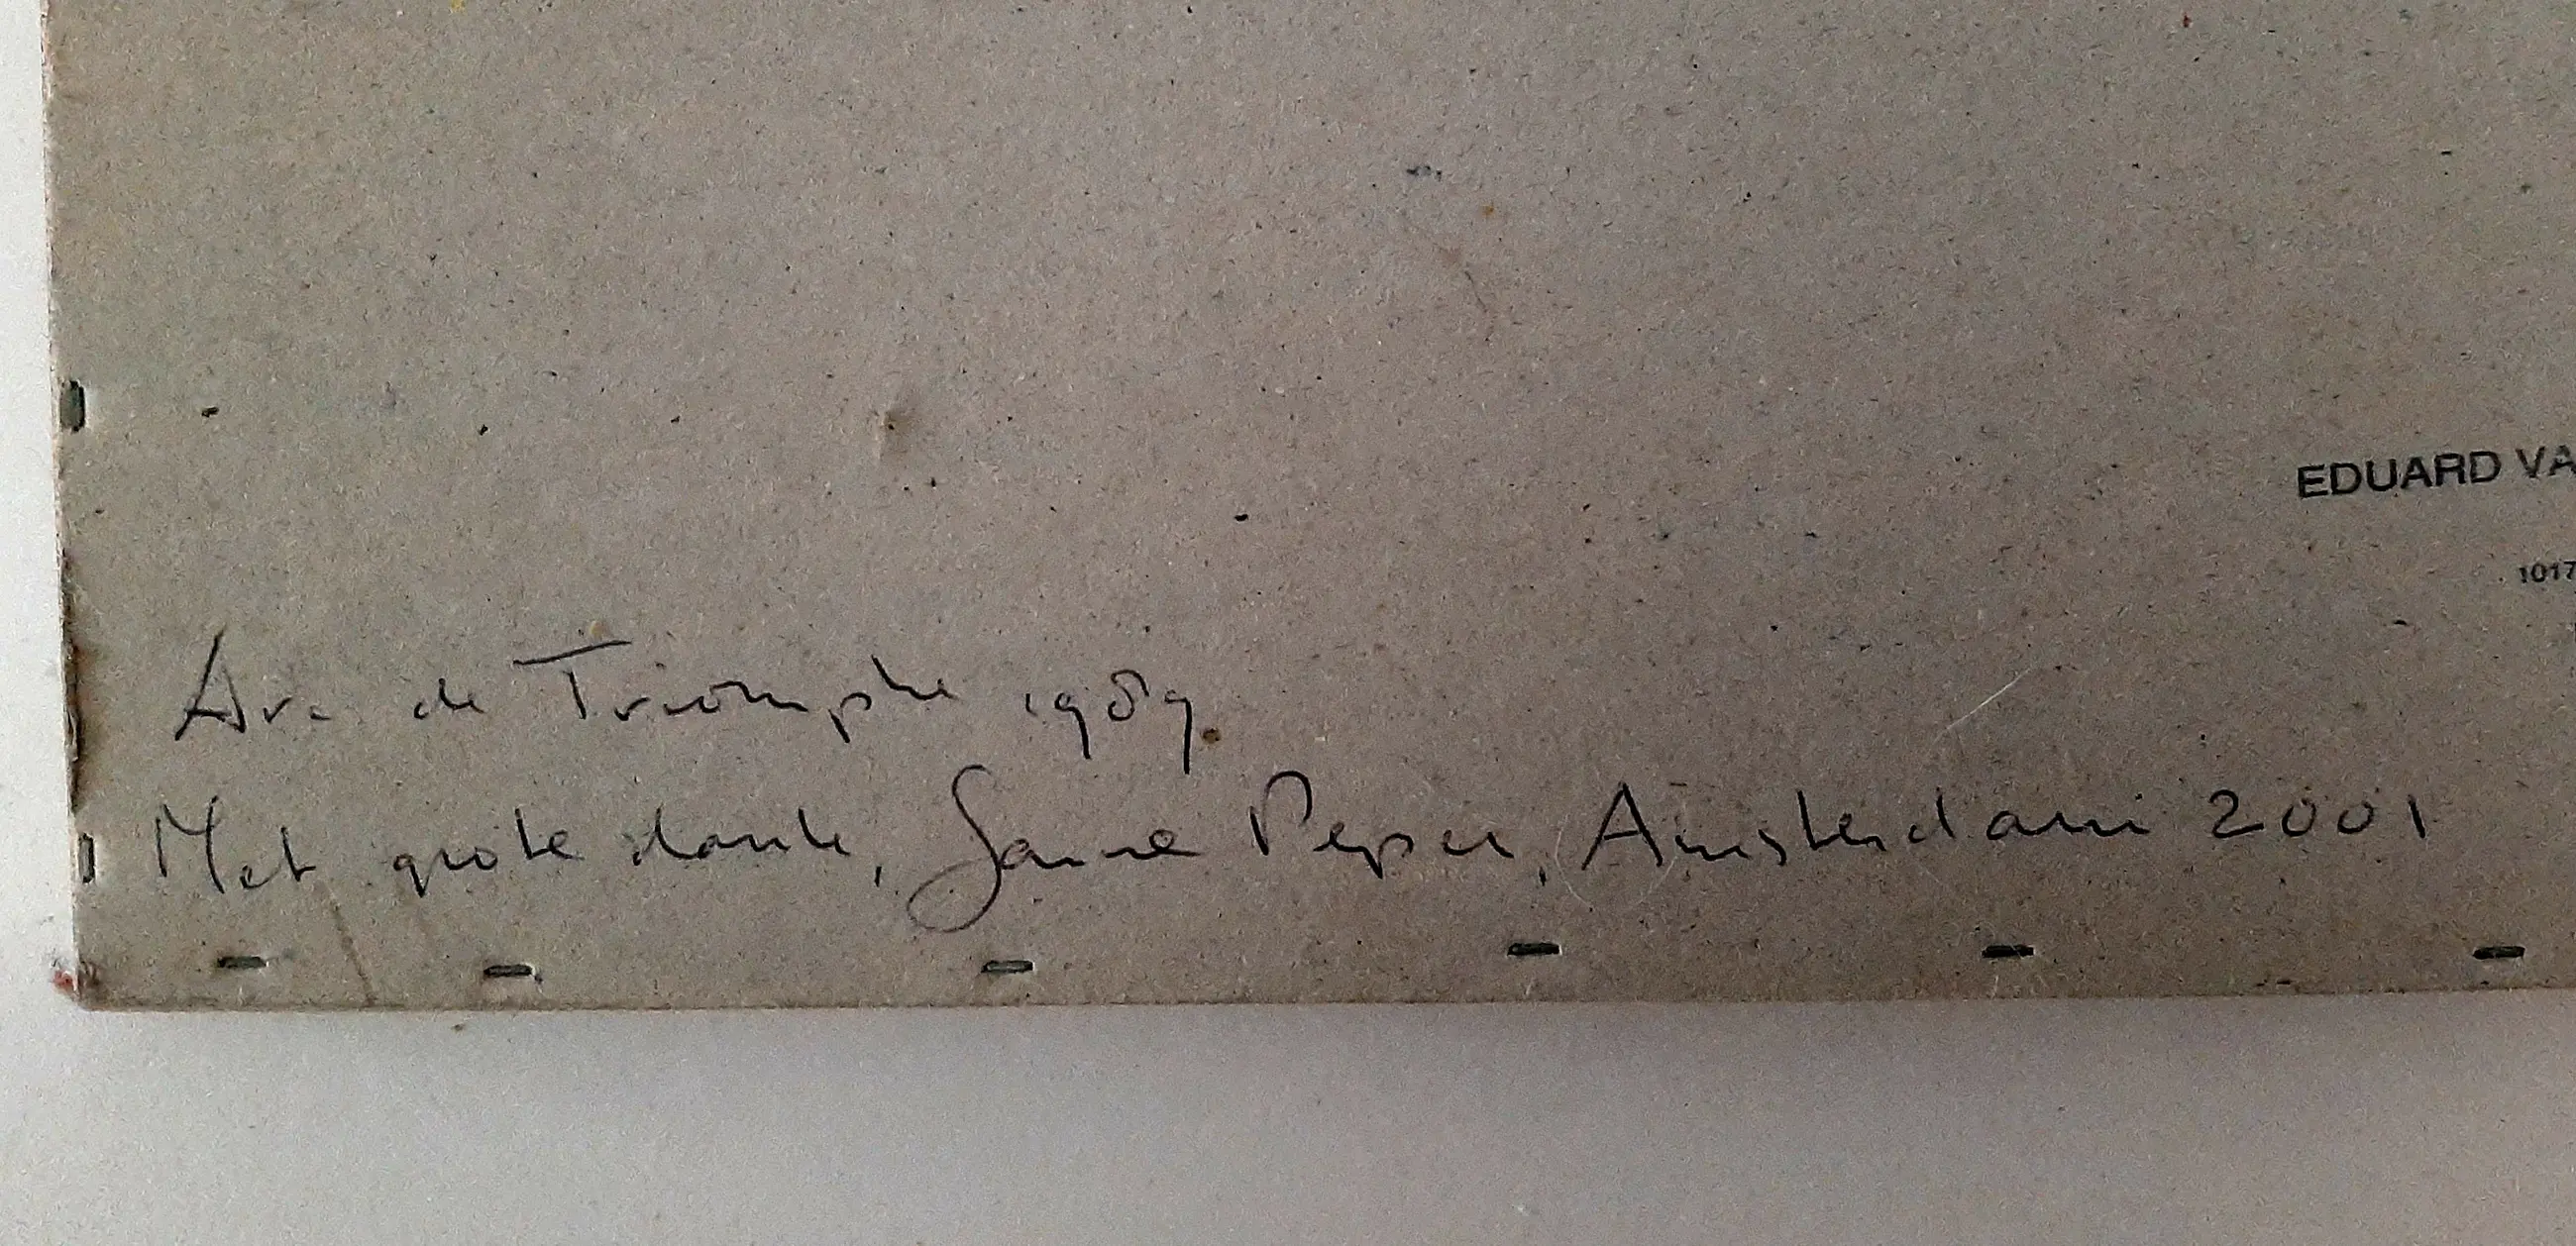 EDUARD VA
1017
Arc de Triomphe 1989
Met grote dank, Sanne Peper, Amsterdam 2001